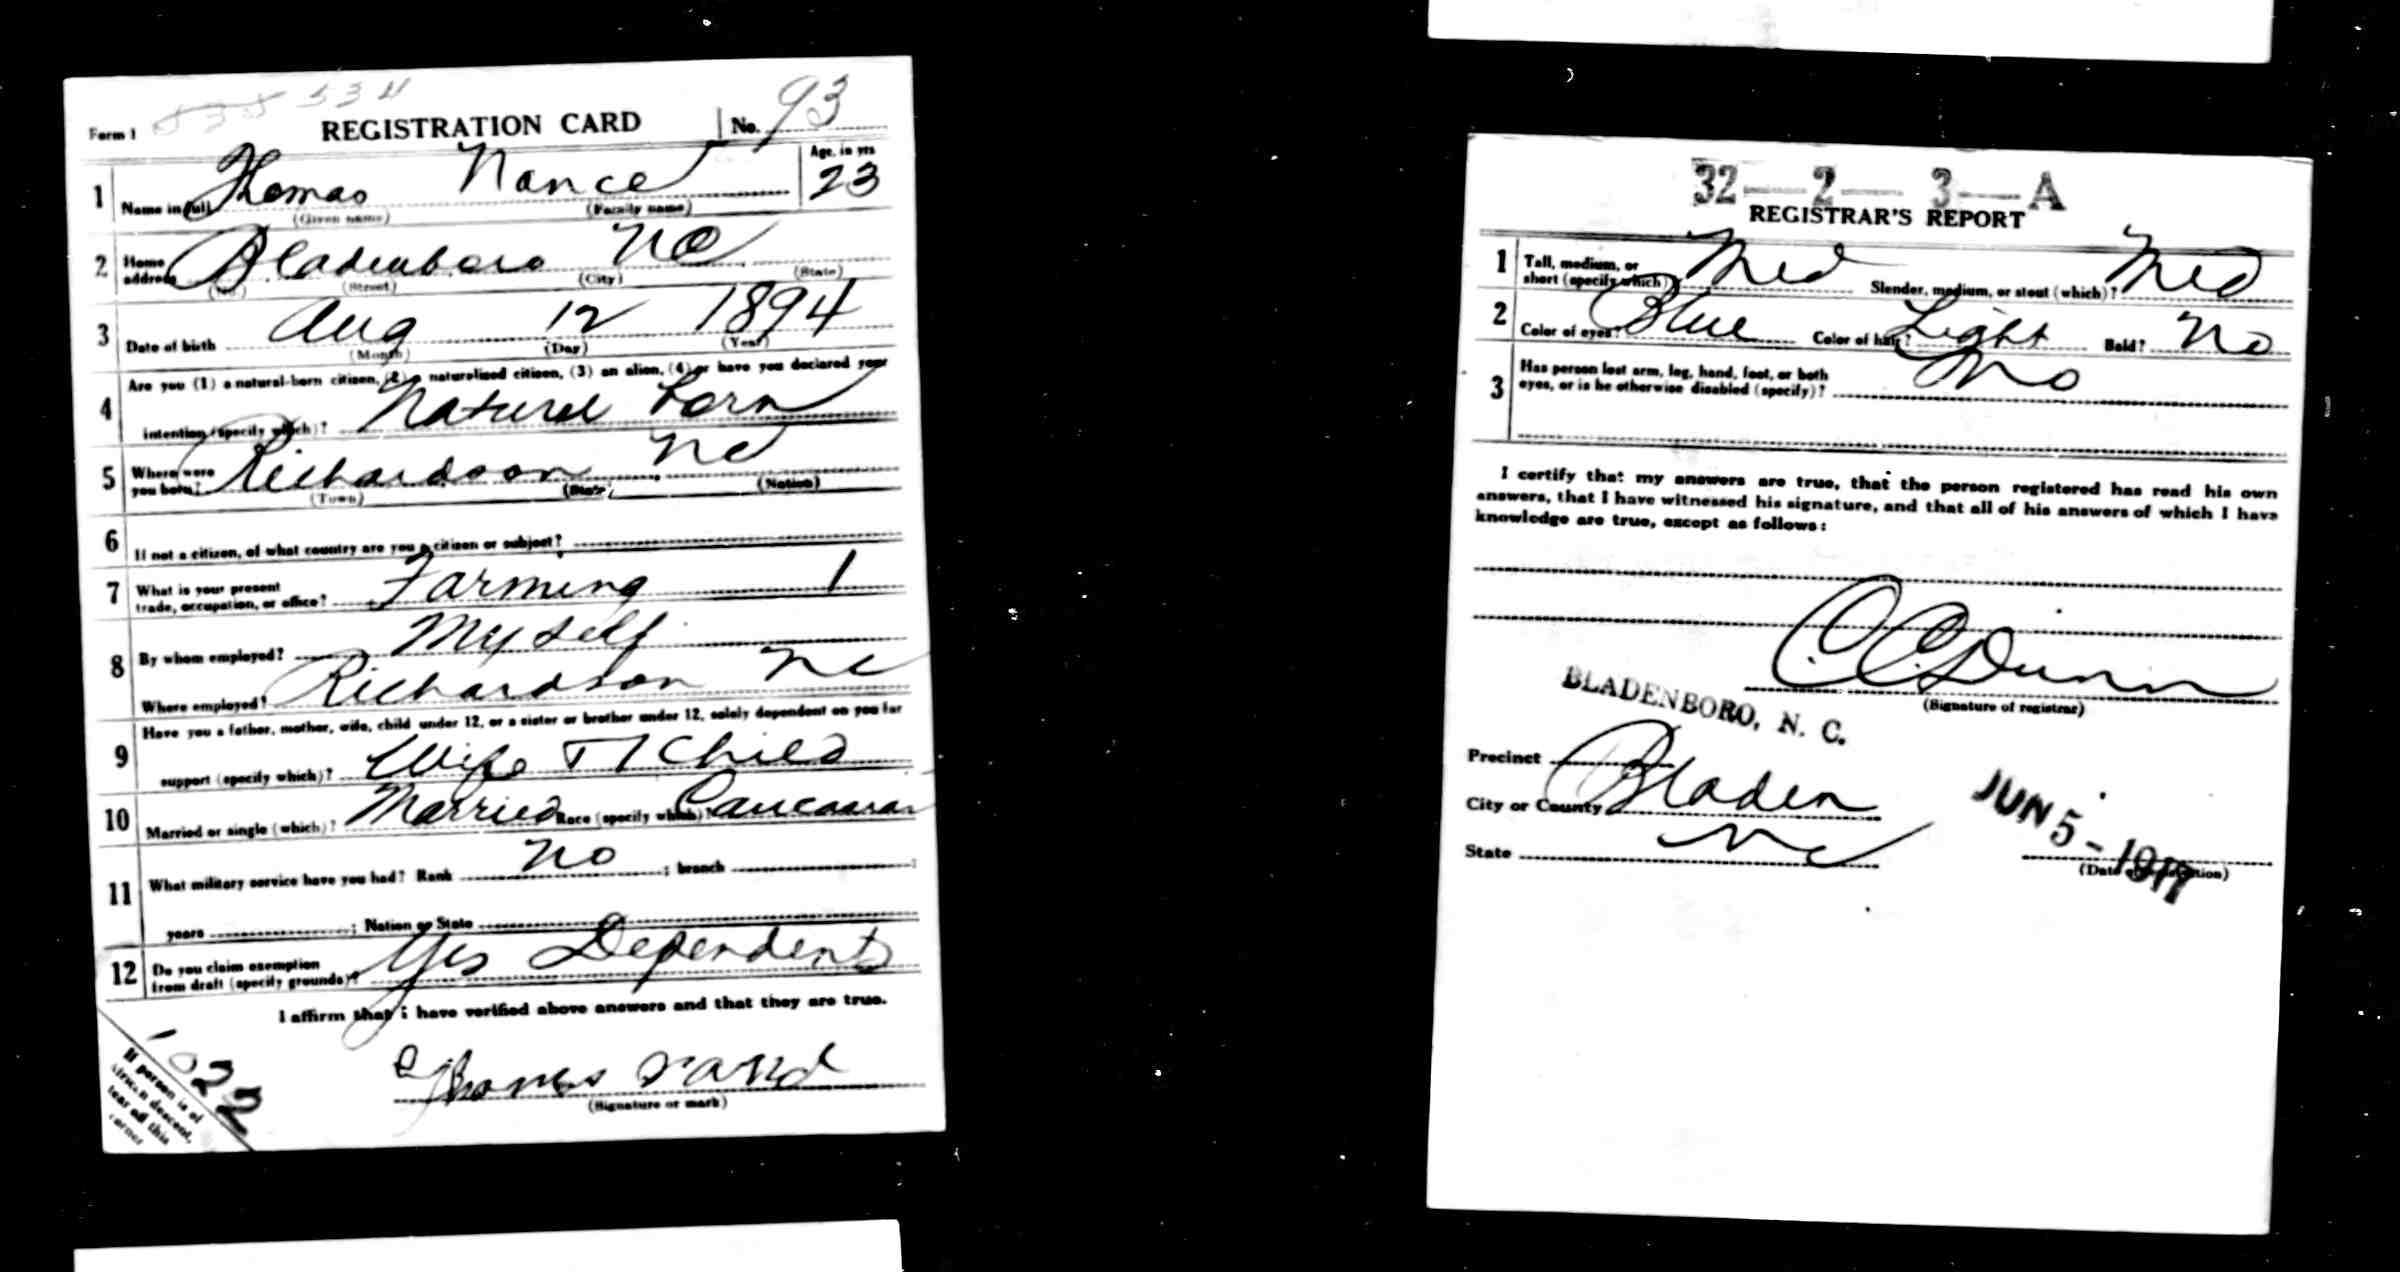 535 534
Form 1 REGISTRATION CARD No. 93
1 Name in full Thomas Nance Age, in yrs 23
(Given name) (Family name)
2 Home address Bladenboro NC
(No.) (Street) (City) (State)
3 Date of birth Aug 12 1894
(Month) (Day) (Year)
4 Are you (1) a natural-born citizen, (2) a naturalized citizen, (3) an alien, (4) or have you declared your
intention (specify which)? Natural born
5 Where were you born? Richardson NC
(Town) (State) (Nation)
6 If not a citizen, of what country are you a citizen or subject?
7 What is your present trade, occupation, or office? Farming 1
8 By whom employed? Myself
Where employed? Richardson NC
9 Have you a father, mother, wife, child under 12, or a sister or brother under 12, solely dependent on you for
support (specify which)? Wife + 1 Child
10 Married or single (which)? Married Race (specify which)? Caucasian
11 What military service have you had? Rank No ; branch ;
years ; Nation or State
12 Do you claim exemption from draft (specify grounds)? Yes Dependents
I affirm that I have verified above answers and that they are true.
Thomas
(Signature or mark)
If person is of African descent, tear off this corner
32—2—3—A
REGISTRAR'S REPORT
1 Tall, medium, or short (specify which)? Med Slender, medium, or stout (which)? Med
2 Color of eyes? Blue Color of hair? Light Bald? No
3 Has person lost arm, leg, hand, foot, or both eyes, or is he otherwise disabled (specify)? No
I certify that my answers are true, that the person registered has read his own
answers, that I have witnessed his signature, and that all of his answers of which I have
knowledge are true, except as follows:
C. C. Dunn
(Signature of registrar)
BLADENBORO, N. C.
Precinct
City or County Bladen
State NC
JUN 5 - 1917
(Date of registration)